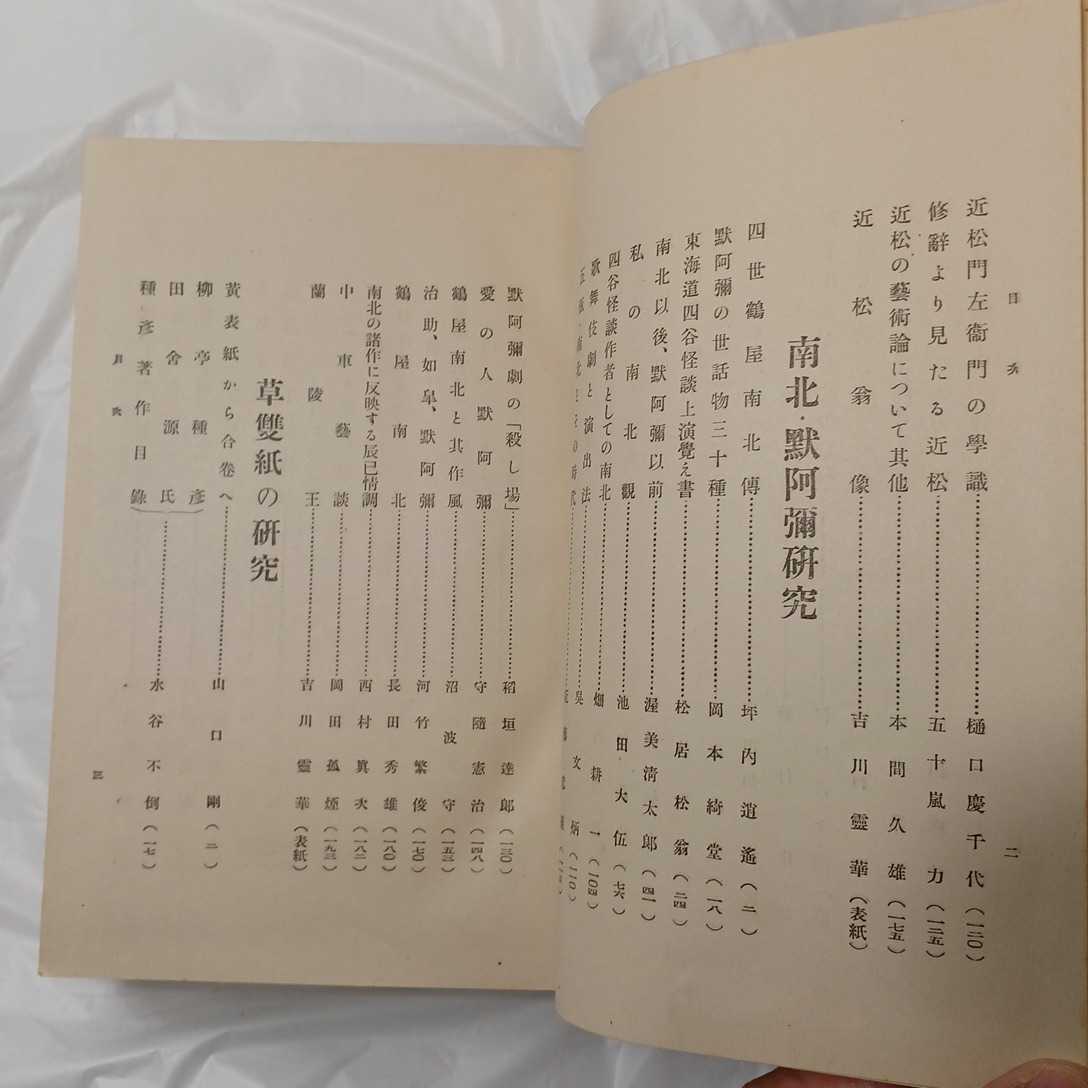 目次
二
近松門左衞門の學識……樋口慶千代(一二〇)
修辭より見たる近松……五十嵐力(一三五)
近松の藝術論について其他……本間久雄(一七五)
近松翁像……吉川靈華(表紙)
南北・默阿彌硏究
四世鶴屋南北傳……坪內逍遙(二)
默阿彌の世話物三十種……岡本綺堂(一八)
東海道四谷怪談上演覺え書……松居松翁(二四)
南北以後、默阿彌以前……渥美淸太郎(四一)
私の南北觀……池田大伍(七六)
四谷怪談作者としての南北……畑耕一(一〇四)
歌舞伎劇と演出法……吳文炳(一一〇)
默阿彌劇の「殺し場」……稻垣達郎(一三〇)
愛の人默阿彌……守隨憲治(一四八)
鶴屋南北と其作風……沼波守(一五三)
治助、如皐、默阿彌……河竹繁俊(一七〇)
鶴屋南北……長田秀雄(一八〇)
南北の諸作に反映する辰巳情調……西村眞次(一八二)
中車藝談……岡田孤煙(一九三)
蘭陵王……吉川靈華(表紙)
草雙紙の硏究
黃表紙から合卷へ……山口剛(二)
柳亭種彥
田舍源氏
種彥著作目錄……水谷不倒(一七)
目次
三